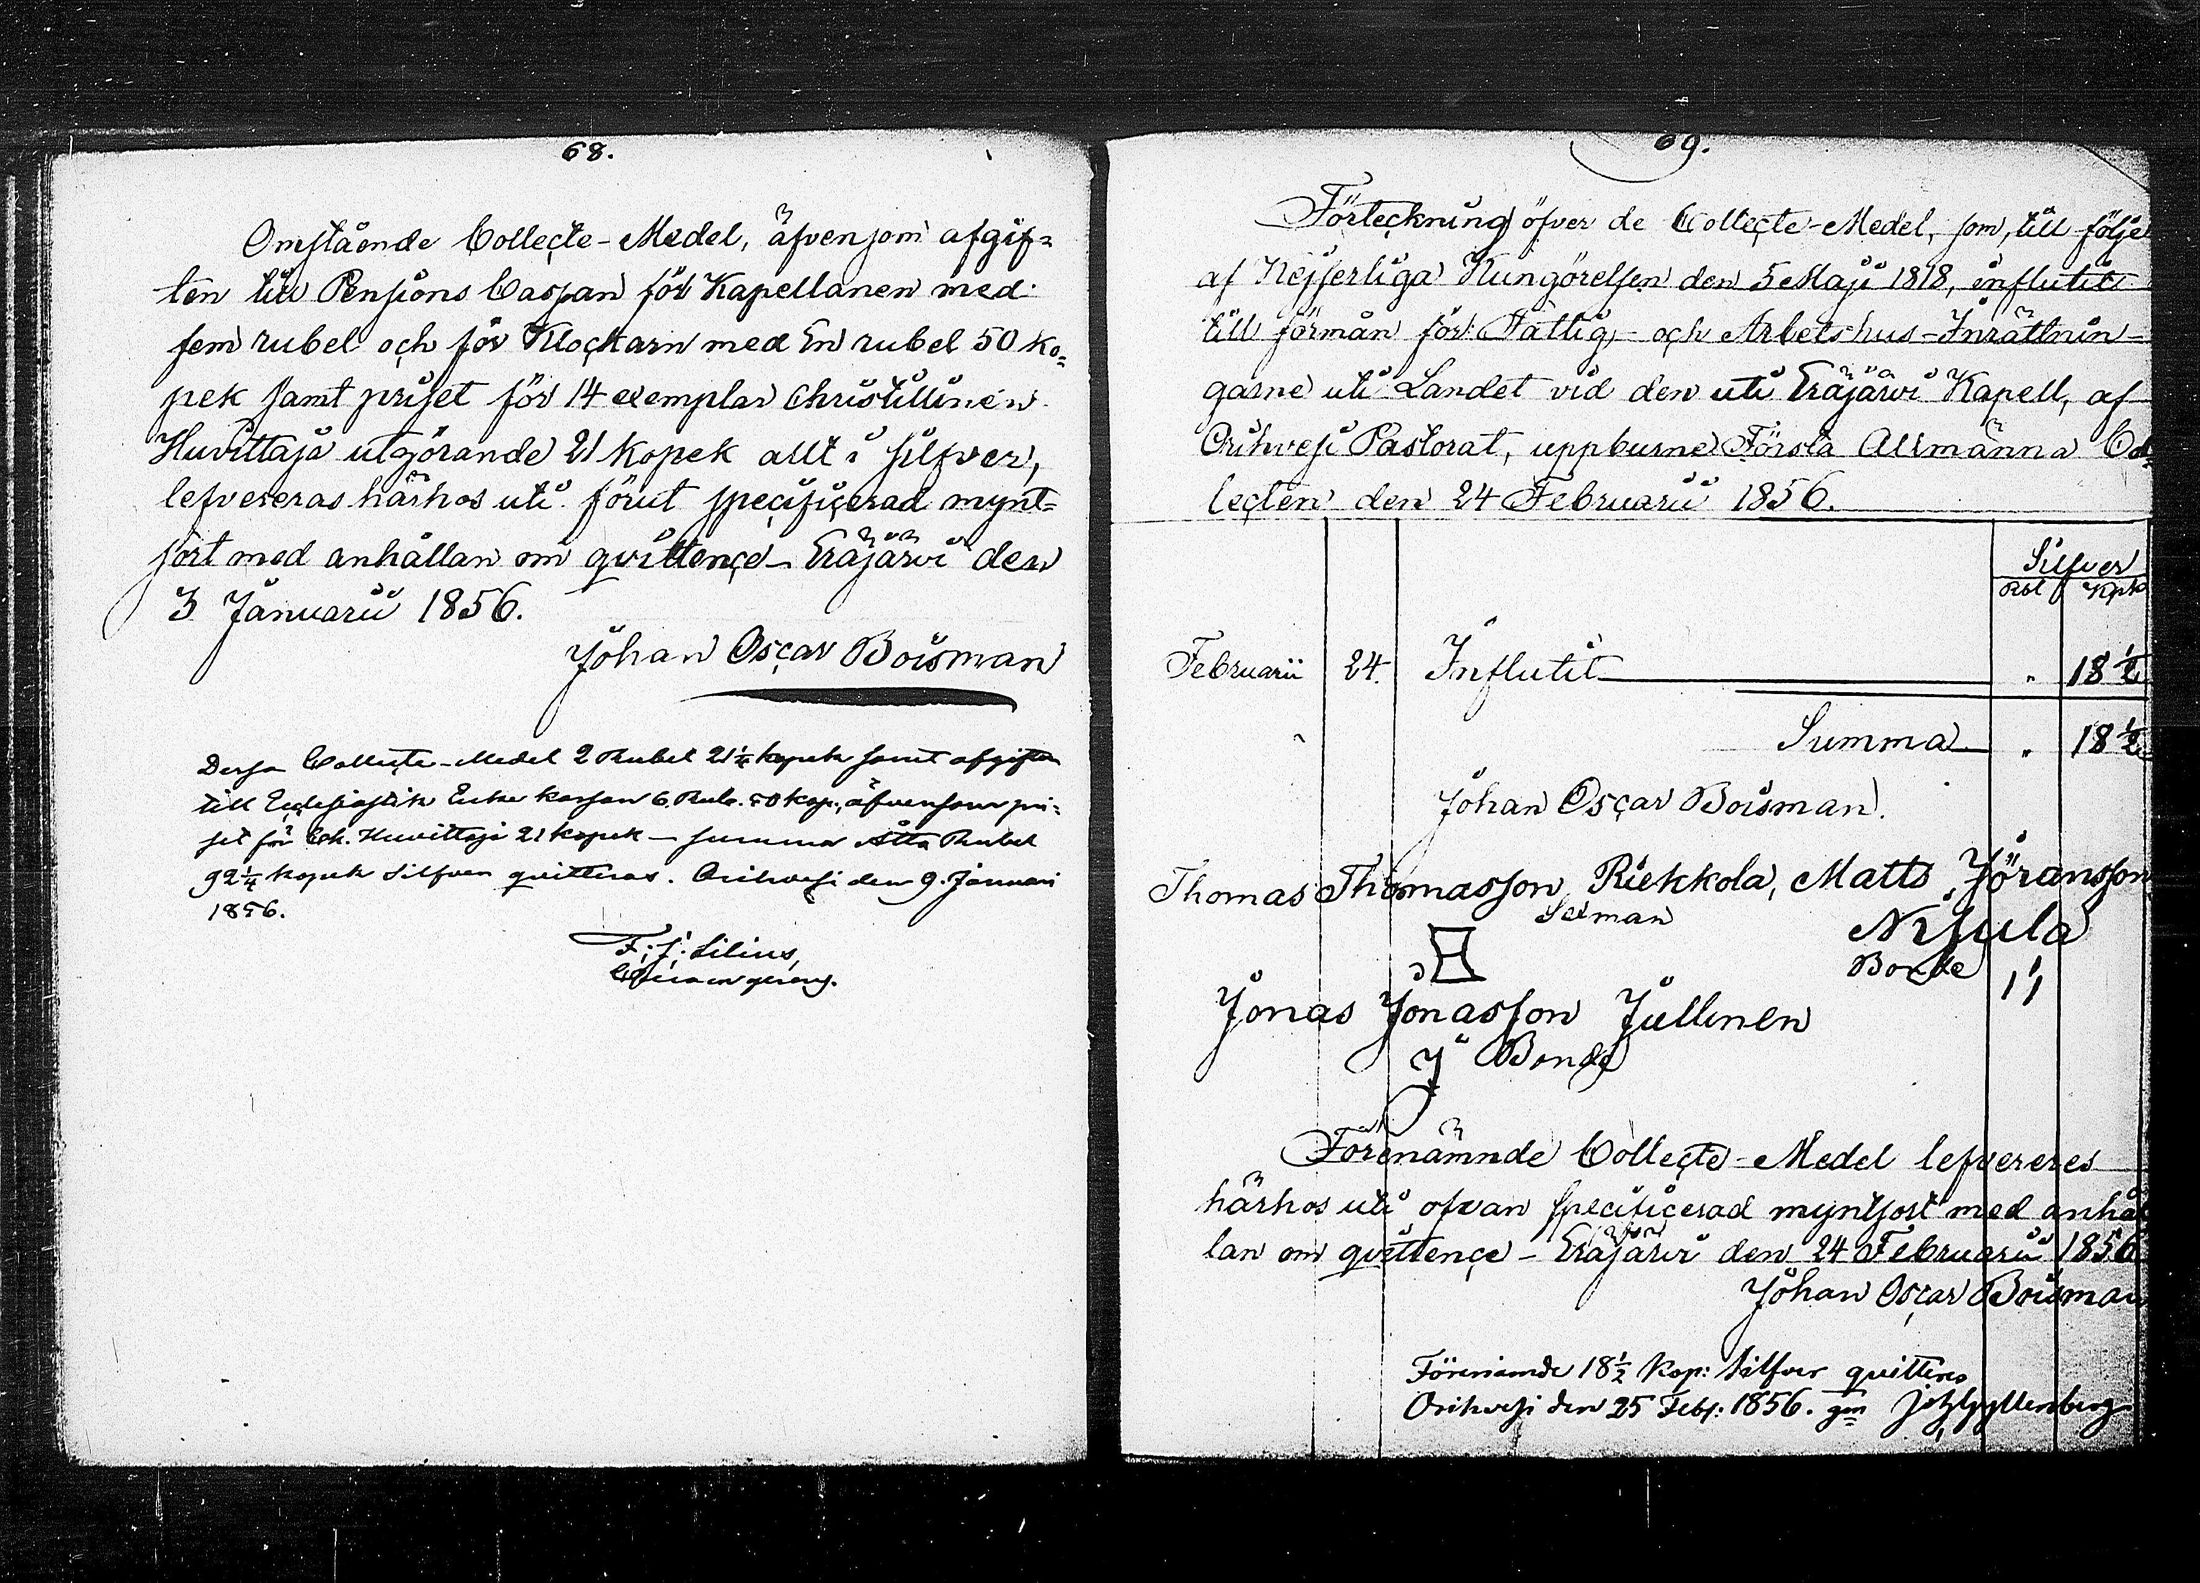 68.
Omstående Collecte-Medel, äfvensom afgif=
ten till Pensions Cassan för Kapellanen med
fem rubel och för Klockarn med En rubel 50 ko=
pek samt priset för 14 exemplar Christillinen
Huvittaja utgörande 21 kopek allt i silfver,
lefvereras härhos uti förut specificerad mynt=
sort med anhållan om qvittence - Eräjärvi den
3 Januarii 1856.
Johan Oscar Boisman
Dessa Collecte-Medel 2 Rubel 21 1/4 kopek samt afgiften
till Ecclesiastik Enke kassan 6. Rub. 50 kop., äfvensom pri=
set för Ch. Huvittaja 21 kopek - summa Åtta Rubel
92 1/4 kopek Silfver qvitteras. Orihvesi den 9. Januari
1856.
F: J: Lilius,
69.
Förteckning öfver de Collecte-Medel, som, till följe
af Kejserliga Kungörelsen den 5 Maji 1818, influtit
till förmån för Fattig- och Arbetshus-Inrättnin-
garne uti Landet vid den uti Eräjärvi Kapell, af
Orihvesi Pastorat, uppburne Första Allmänna Col=
lecten den 24 Februarii 1856.
Silfver
Rbl Kpk
Februarii 24. Influtit " 18 1/2
Summa " 18 1/2
Johan Oscar Boisman.
Thomas Thomasson Riekkola, Matts Jöransson
Sexman
Nisula
Bonde
Jonas Jonasson Jullinen
Bonde
Förenämnde Collecte-Medel lefvereres
härhos uti ofvan specificerad myntsort med anhål
lan om qvittence - Eräjärvi den 24 Februarii 1856
Johan Oscar Boisman
Förenämde 18 1/2 Kop: Silfver qvitteres
Orihvesi den 25 Feb: 1856. gm Joh Gyllenberg